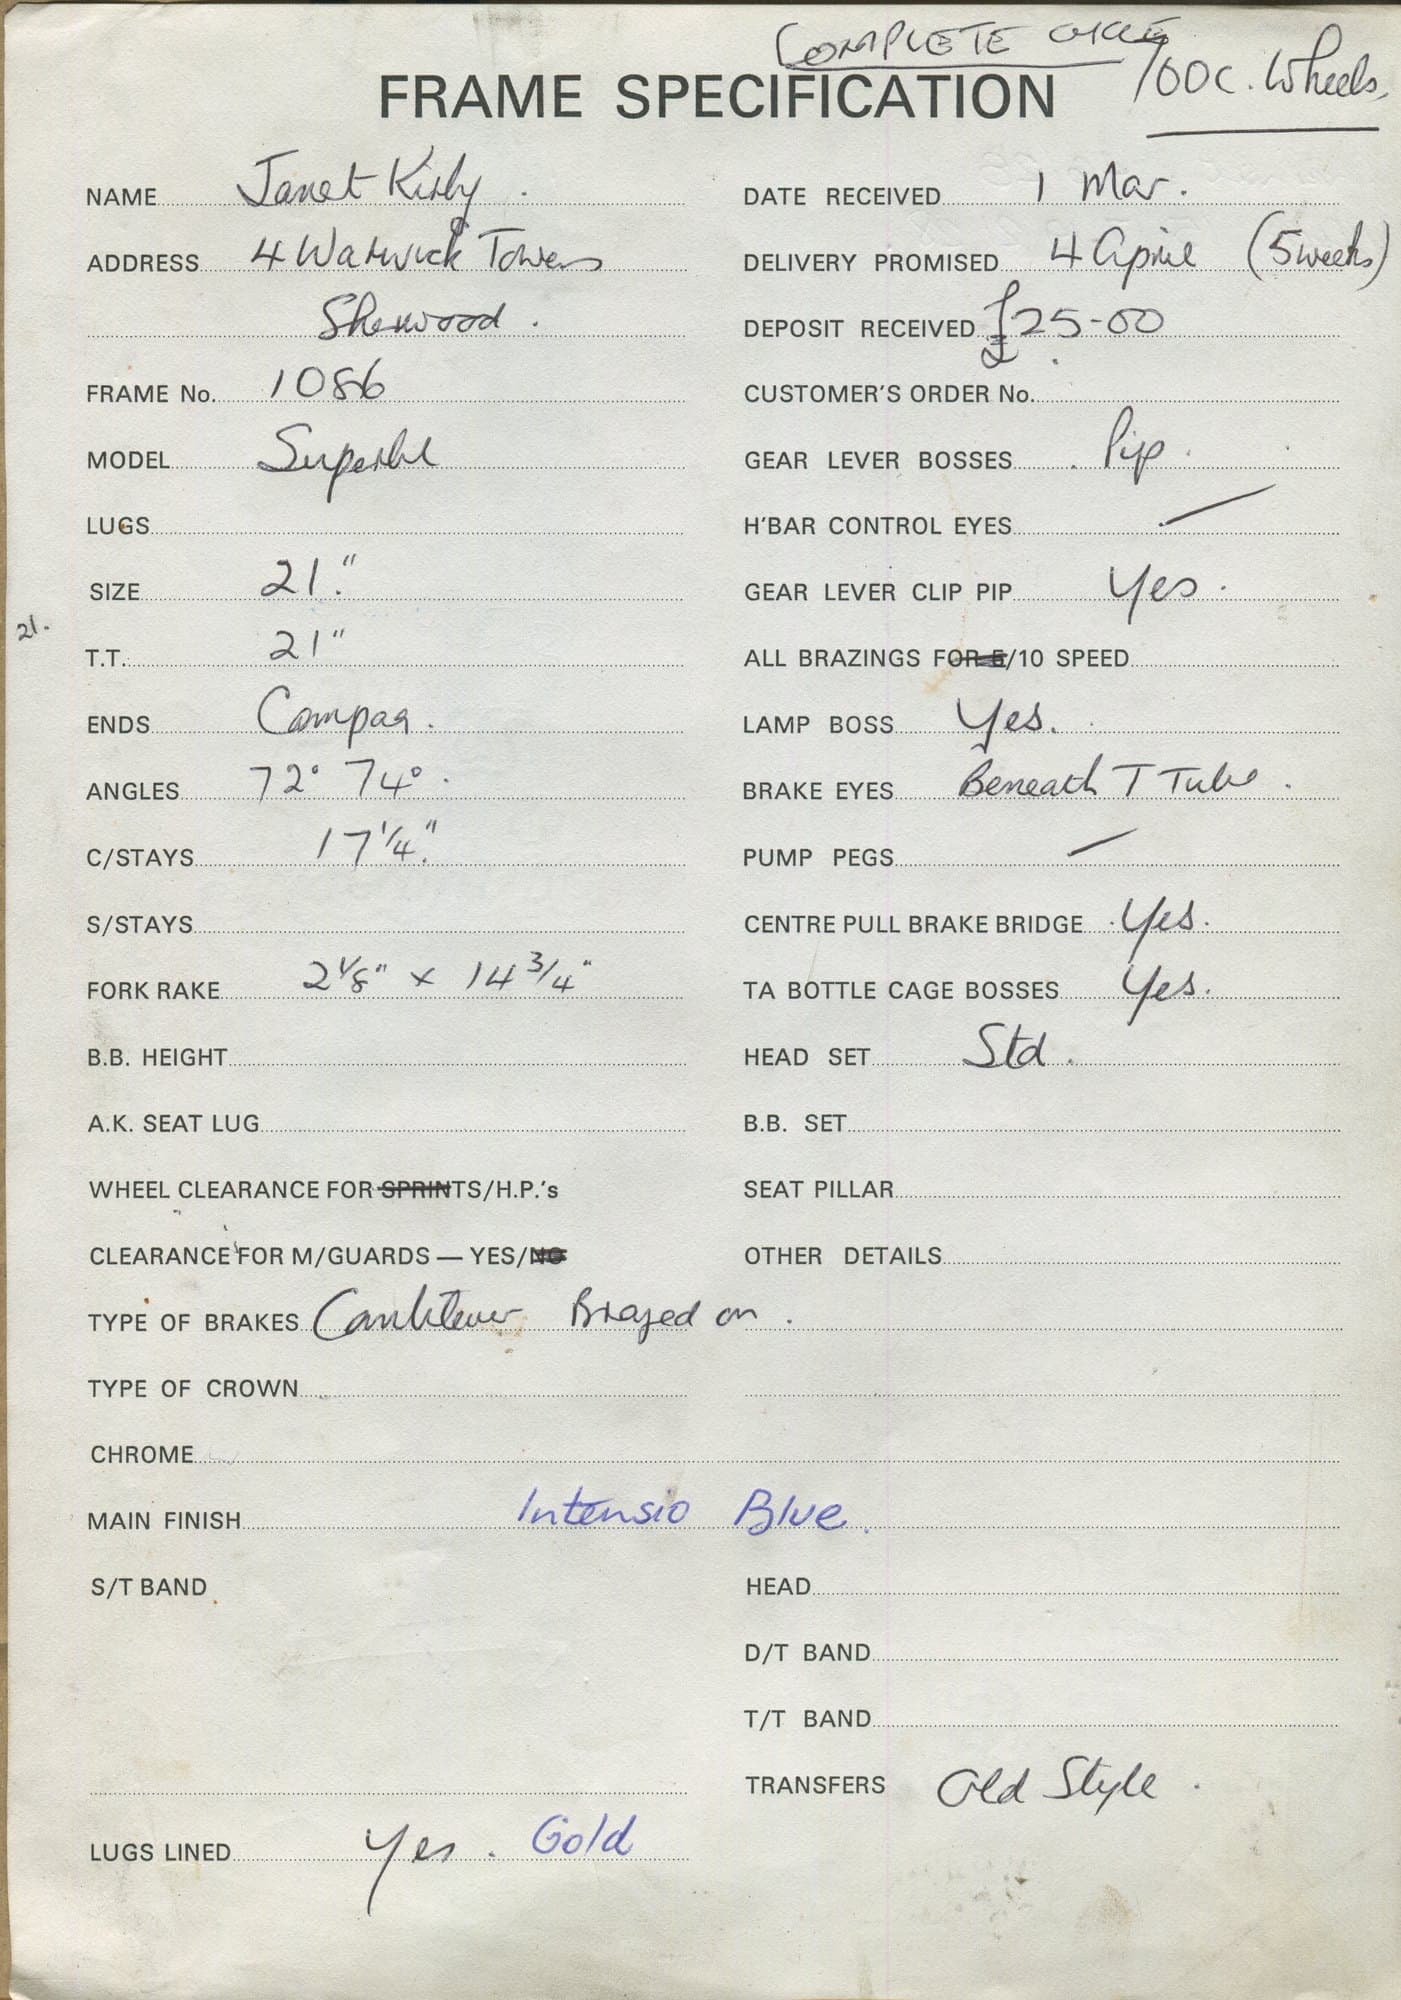 COMPLETE CYCLE
700C. Wheels.
FRAME SPECIFICATION
NAME Janet Kirby.
ADDRESS 4 Warwick Towers
Sherwood.
FRAME No. 1086
MODEL Superbe
LUGS
SIZE 21."
21.
T.T. 21"
ENDS Campag.
ANGLES 72° 74°.
C/STAYS 17 1/4."
S/STAYS
FORK RAKE 2 1/8" x 14 3/4"
B.B. HEIGHT
A.K. SEAT LUG
WHEEL CLEARANCE FOR SPRINTS/H.P.'s
CLEARANCE FOR M/GUARDS — YES/NO
TYPE OF BRAKES Cantilever Brazed on.
TYPE OF CROWN
CHROME
MAIN FINISH Intensio Blue.
S/T BAND
LUGS LINED Yes. Gold
DATE RECEIVED 1 Mar.
DELIVERY PROMISED 4 April (5 weeks)
DEPOSIT RECEIVED £25-00
CUSTOMER'S ORDER No.
GEAR LEVER BOSSES Pip.
H'BAR CONTROL EYES —
GEAR LEVER CLIP PIP Yes.
ALL BRAZINGS FOR 5/10 SPEED
LAMP BOSS Yes.
BRAKE EYES Beneath T Tube.
PUMP PEGS —
CENTRE PULL BRAKE BRIDGE Yes.
TA BOTTLE CAGE BOSSES Yes.
HEAD SET Std.
B.B. SET
SEAT PILLAR
OTHER DETAILS
HEAD
D/T BAND
T/T BAND
TRANSFERS Old Style.